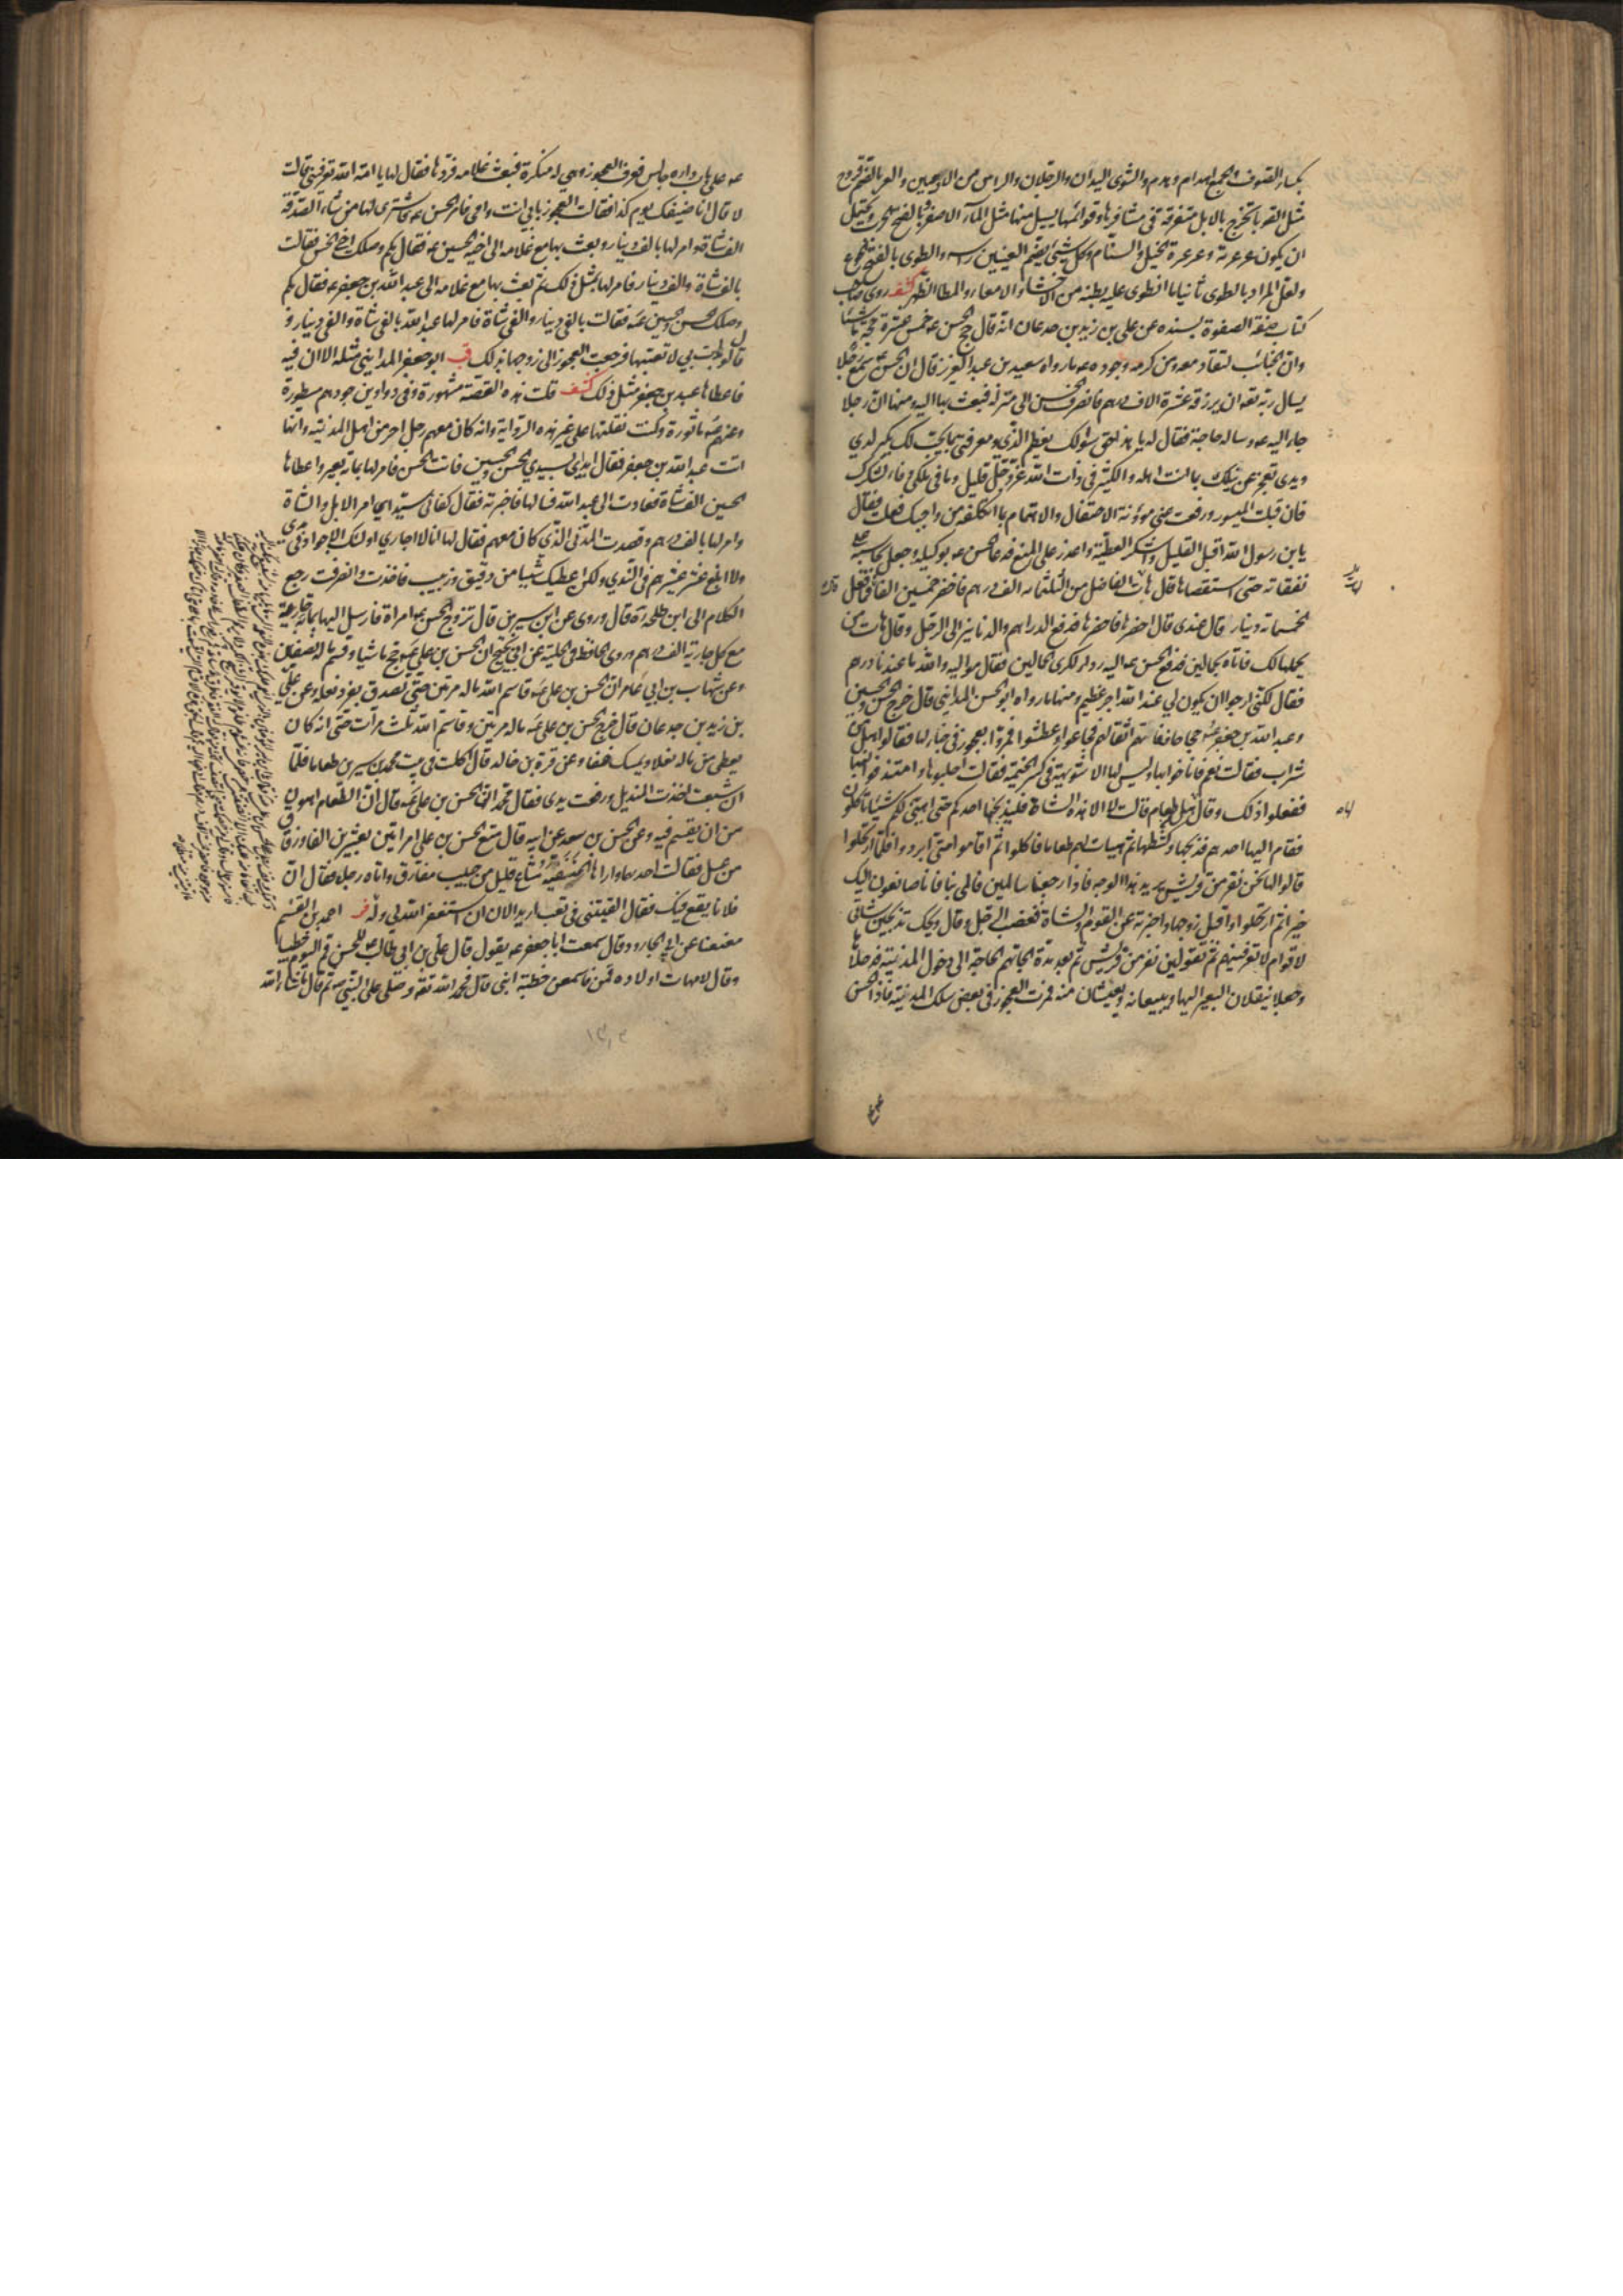 بكساء الصوف والجمع اهدام وهدم والشوى اليدان والرجلان والراس من الآدميين والعر بالضم قروح
مثل القوباء تخرج بالابل متفرقة في مشافرها وقوائمها يسيل منها مثل الماء الاصفر وبالفتح الجرب ويحتمل
ان يكون عرعرته وعرعرة الجبل والسنام وكل شيء بضم العينين راسه والطوى بالفتح الجوع
ولعل المراد بالطوى ثانيا ما انطوى عليه بطنه من الاحشاء والامعاء والمطا الظهر كشف روى صاحب
كتاب صفة الصفوة بسنده عن علي بن زيد بن جدعان انه قال حج الحسن ع خمس عشرة حجة ماشيا
وان الجنائب لتقاد معه ومن كرمه وجوده ع ما رواه سعيد بن عبد العزيز قال ان الحسن ع سمع رجلا
يسال ربه تعه ان يرزقه عشرة الاف درهم فانصرف الحسن الى منزله فبعث بها اليه ومنها ان رجلا
جاء اليه ع وساله حاجة فقال له يا هذا حق سؤالك يعظم لدي ومعرفتي بما يجب لك يكبر لدي
ويدي تعجز عن نيلك بما انت اهله والكثير في ذات الله عز وجل قليل وما في ملكي وفاء لشكرك
فان قبلت الميسور ورفعت عني مؤونة الاحتفال والاهتمام بما اتكلفه من واجبك فعلت فقال
يابن رسول الله اقبل القليل واشكر العطية واعذر على المنع فدعا الحسن ع بوكيله وجعل يحاسبه على
نفقاته حتى استقصاها قال هات الفاضل من الثلثمائة الف درهم فاحضر خمسين الفا قال فما فعل
الخمسمائة دينار قال عندي قال احضرها فاحضرها فدفع الدراهم والدنانير الى الرجل وقال هات من
يحملها لك فاتاه بحمالين فدفع الحسن ع اليه رداءه لكرى الحمالين فقال مواليه والله ما عندنا درهم
فقال لكني ارجو ان يكون لي عند الله اجر عظيم ومنها ما رواه ابو الحسن المدايني قال خرج الحسن والحسين
وعبد الله بن جعفر ع حجاجا ففاتهم اثقالهم فجاعوا وعطشوا فمروا بعجوز في خباء لها فقالوا هل من
شراب فقالت نعم فاناخوا بها وليس لها الا شويهة في كسر الخيمة فقالت احلبوها وامتذقوا لبنها
ففعلوا ذلك وقالوا لها هل من طعام قالت لا الا هذه الشاة فليذبحنها احدكم حتى اهيئ لكم شيئا تاكلون
فقام اليها احدهم فذبحها وكشطها ثم هيات لهم طعاما فاكلوا ثم اقاموا حتى ابردوا فلما ارتحلوا
قالوا لها نحن نفر من قريش نريد هذا الوجه فاذا رجعنا سالمين فالمي بنا فانا صانعون اليك
خيرا ثم ارتحلوا واقبل زوجها واخبرته عن القوم والشاة فغضب الرجل وقال ويحك تذبحين شاتي
لاقوام لا تعرفينهم ثم تقولين نفر من قريش ثم بعد مدة الجاتهم الحاجة الى دخول المدينة فدخلاها
وجعلا ينقلان البعير اليها ويبيعانه ويعيشان منه فمرت العجوز في بعض سكك المدينة فاذا الحسن
ع على باب داره جالس فعرف العجوز وهي له منكرة فبعث غلامه فردها فقال لها يا امة الله تعرفيني قالت
لا قال انا ضيفك يوم كذا فقالت العجوز بابي انت وامي فامر الحسن ع فاشترى لها من شاء الصدقة
الف شاة وامر لها بالف دينار وبعث بها مع غلامه الى اخيه الحسين ع فقال بكم وصلك اخي الحسن فقالت
بالف شاة والف دينار فامر لها بمثل ذلك ثم بعث بها مع غلامه الى عبد الله بن جعفر ع فقال بكم
وصلك الحسن والحسين ع فقالت بالفي دينار والفي شاة فامر لها عبد الله بالفي شاة والفي دينار و
قال لو بدات بي لاتعبتهما فرجعت العجوز الى زوجها بذلك قب ابو جعفر المدايني مثله الا ان فيه
فاعطاها عبد بن جعفر مثل ذلك كشف قلت هذه القصة مشهورة وفي دواوين جودهم مسطورة
وعنهم ع ماثورة وكنت نقلتها على غير هذه الرواية وانه كان معهم رجل اخر من اهل المدينة وانها
اتت عبد الله بن جعفر فقال ابدئي بسيدي الحسن والحسين فاتت الحسن فامر لها بمائة بعير واعطاها
الحسين الف شاة فعادت الى عبد الله فسالها فاخبرته فقال كفاني سيداي امر الابل والشاة
وامر لها بالف درهم وقصدت المدني الذي كان معهم فقال لها انا لا اجاري اولئك الاجواد في مدى
ولا ابلغ عشر عشيرهم في الندي ولكن اعطيك شيئا من دقيق وزبيب فاخذت وانصرفت رجع
الكلام الى ابن طلحة ره قال وروى عن ابن سيرين قال تزوج الحسن ع امراة فارسل اليها بمائة جارية
مع كل جارية الف درهم وروى الحافظ في الحلية عن ابي نجيح ان الحسن بن علي ع حج ماشيا وقسم ماله نصفين
وعن شهاب بن ابي عامر ان الحسن بن علي ع قاسم الله ماله مرتين حتى تصدق بفرد نعله وعن علي
بن زيد بن جدعان قال خرج الحسن بن علي ع من ماله مرتين وقاسم الله ثلث مرات حتى انه كان
يعطي من ماله نعلا ويمسك خفا وعن قرة بن خالد قال اكلت في بيت محمد بن سيرين طعاما فلما
ان شبعت اخذت المنديل ورفعت يدي فقال محمد ان الحسن بن علي ع قال ان الطعام اهون
من ان يقسم فيه وعن الحسن بن سعد عن ابيه قال متع الحسن بن علي امراتين بعشرين الفا وزقاق
من عسل فقالت احديهما واراها الحنفية متاع قليل من حبيب مفارق واتاه رجل فقال ان
فلانا يقع فيك فقال القيتني في تعب اريد الان ان استغفر الله لي وله فر احمد بن القسم
معنعنا عن ابي الجارود قال سمعت ابا جعفر ع يقول قال علي بن ابي طالب ع للحسن قم اليوم خطيبا
وقال لامهات اولاده قمن فاسمعن خطبة ابني قال فحمد الله تعه وصلى على النبي ص ثم قال ما شاء الله